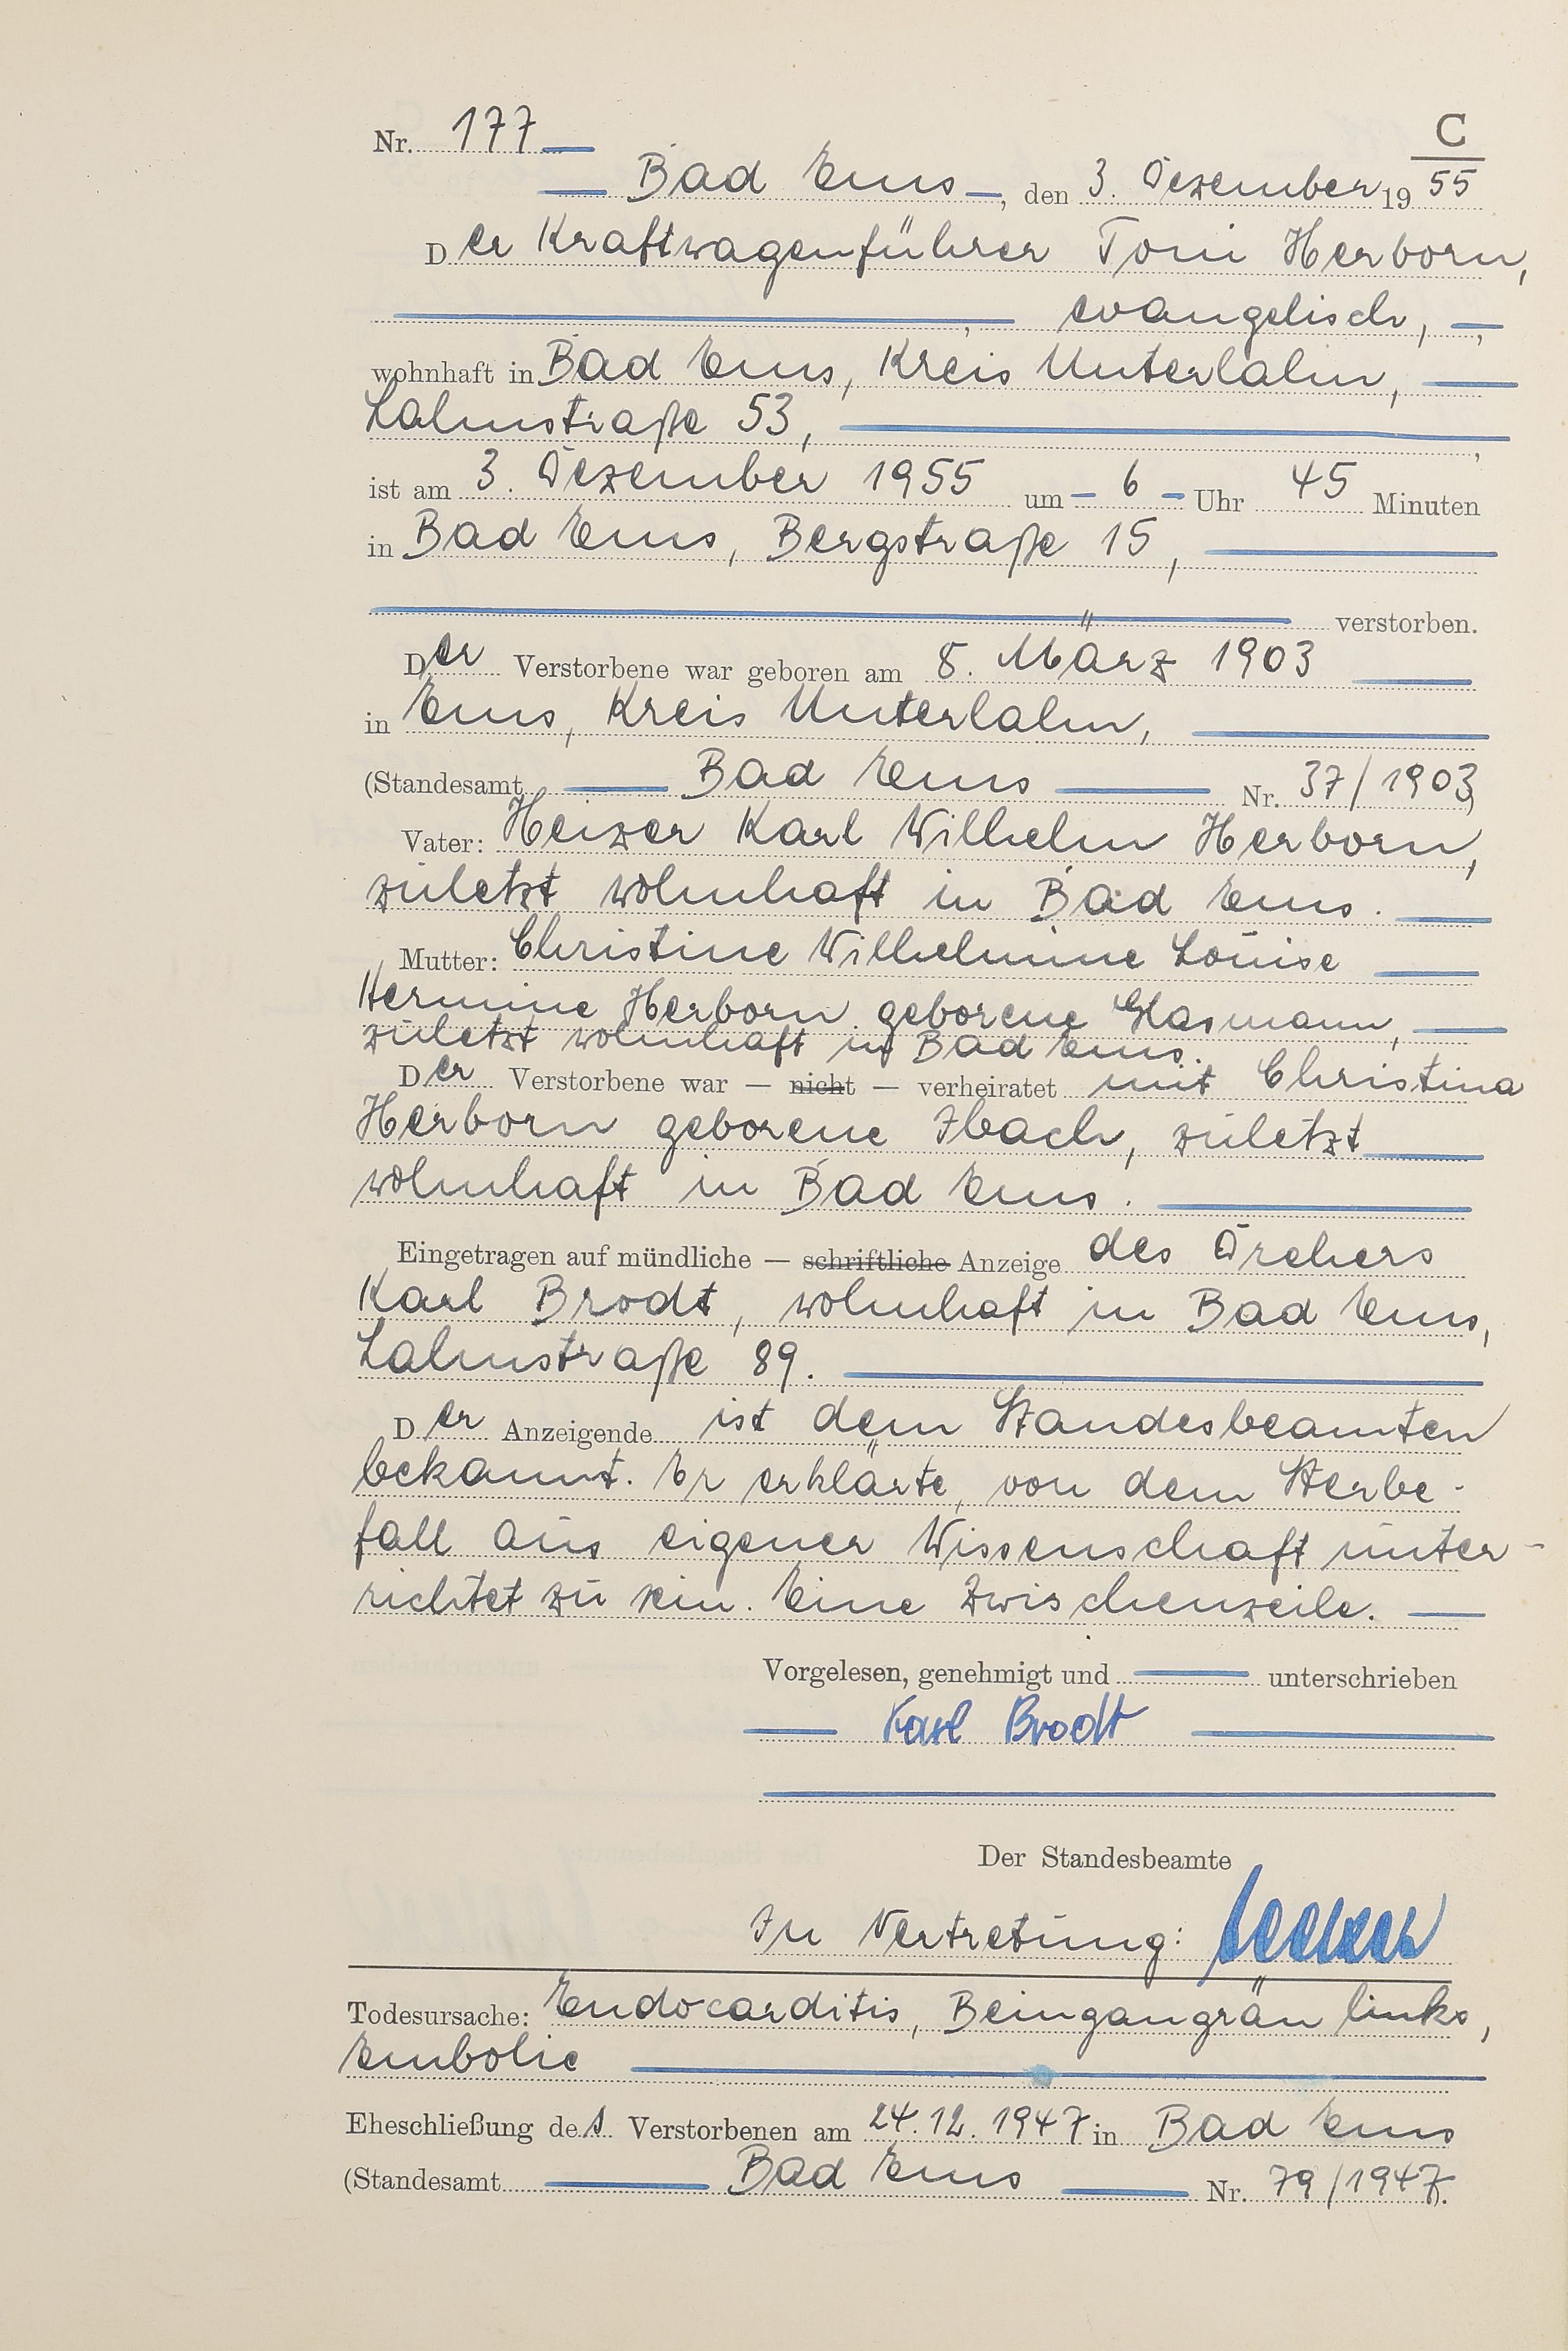 C
Nr. 177
Bad Ems, den 3. Dezember 1955
Der Kraftwagenführer Toni Herborn,
, evangelisch, ,
wohnhaft in Bad Ems, Kreis Unterlahn,
Lahnstraße 53, ,
ist am 3. Dezember 1955 um 6 Uhr 45 Minuten
in Bad Ems, Bergstraße 15,
verstorben.
Der Verstorbene war geboren am 8. März 1903
in Ems, Kreis Unterlahn,
(Standesamt Bad Ems Nr. 37/1903)
Vater: Heizer Karl Wilhelm Herborn,
zuletzt wohnhaft in Bad Ems.
Mutter: Christine Wilhelmine Louise
Hermine Herborn geborene Glasmann,
zuletzt wohnhaft in Bad Ems.
Der Verstorbene war — nicht — verheiratet mit Christina
Herborn geborene Ibach, zuletzt
wohnhaft in Bad Ems.
Eingetragen auf mündliche — schriftliche Anzeige des Drehers
Karl Brodt, wohnhaft in Bad Ems,
Lahnstraße 89.
Der Anzeigende ist dem Standesbeamten
bekannt. Er erklärte, von dem Sterbe-
fall aus eigener Wissenschaft unter-
richtet zu sein. Eine Zwischenzeile.
Vorgelesen, genehmigt und unterschrieben
Karl Brodt
Der Standesbeamte
In Vertretung:
Todesursache: Endocarditis, Beingangrän links,
Embolie
Eheschließung des Verstorbenen am 24.12.1947 in Bad Ems
(Standesamt Bad Ems Nr. 79/1947).